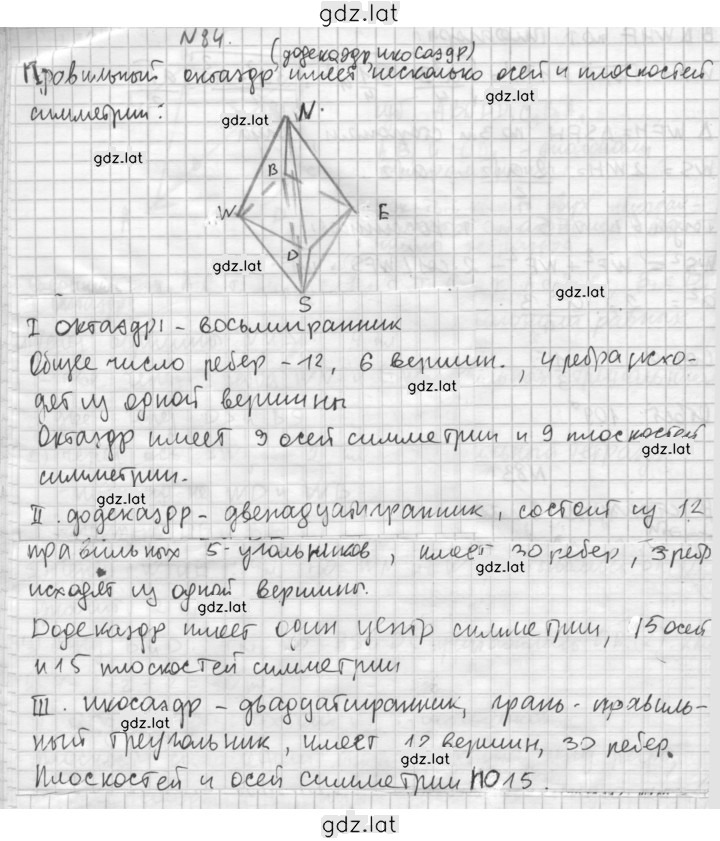 gdz.lat
N84.
(додекаэдр, икосаэдр)
Правильный октаэдр имеет несколько осей и плоскостей
gdz.lat
симметрии:
gdz.lat
N.
gdz.lat
B
W
E
D
gdz.lat
gdz.lat
S
I октаэдр - восьмигранник
Общее число ребер - 12, 6 вершин., 4 ребра исхо-
gdz.lat
дят из одной вершины
Октаэдр имеет 9 осей симметрии и 9 плоскостей
gdz.lat
симметрии.
gdz.lat
II. додекаэдр - двенадцатигранник, состоит из 12
правильных 5-угольников, имеет 30 ребер, 3 реб
gdz.lat
исходят из одной вершины.
gdz.lat
Додекаэдр имеет один центр симметрии, 15 осей
и 15 плоскостей симметрии
III. икосаэдр - двадцатигранник, грань - правиль-
gdz.lat
ный треугольник, имеет 12 вершин, 30 ребер.
gdz.lat
Плоскостей и осей симметрии по 15.
gdz.lat